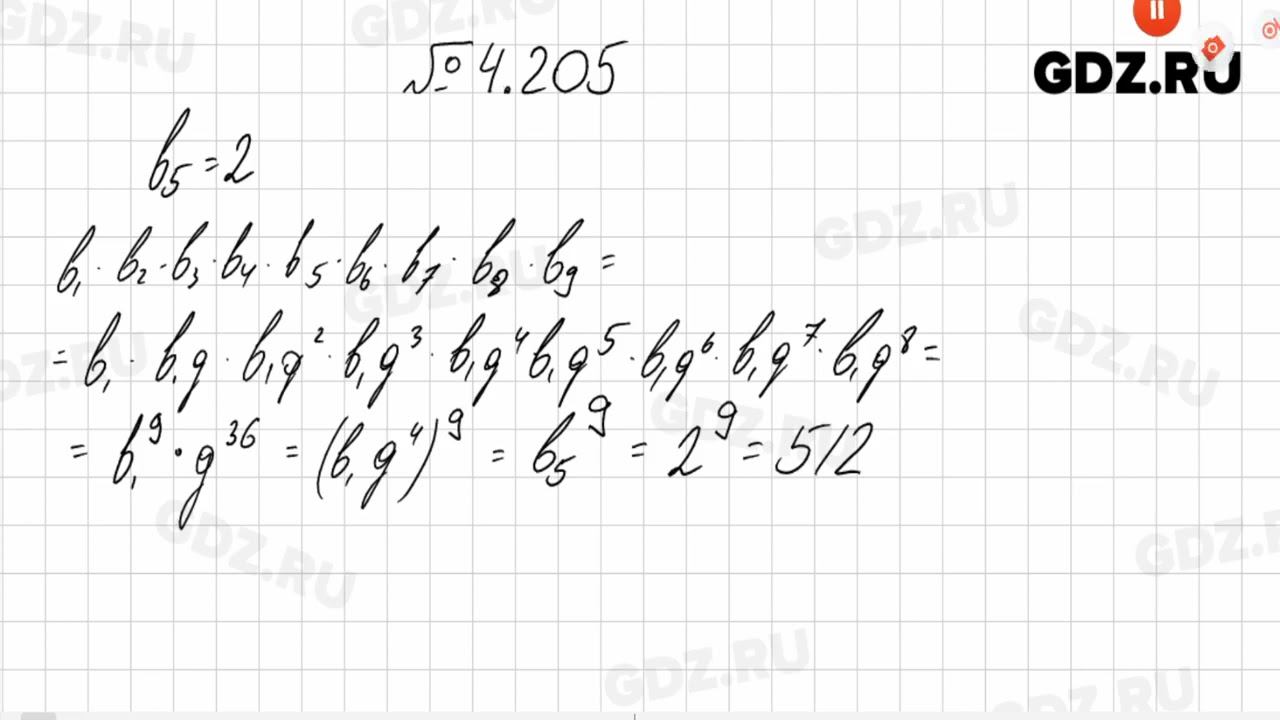 GDZ.RU
№ 4.205
b₅ = 2
b₁ · b₂ · b₃ · b₄ · b₅ · b₆ · b₇ · b₈ · b₉ =
= b₁ · b₁q · b₁q² · b₁q³ · b₁q⁴ b₁q⁵ · b₁q⁶ · b₁q⁷ · b₁q⁸ =
= b₁⁹ · q³⁶ = (b₁q⁴)⁹ = b₅⁹ = 2⁹ = 512